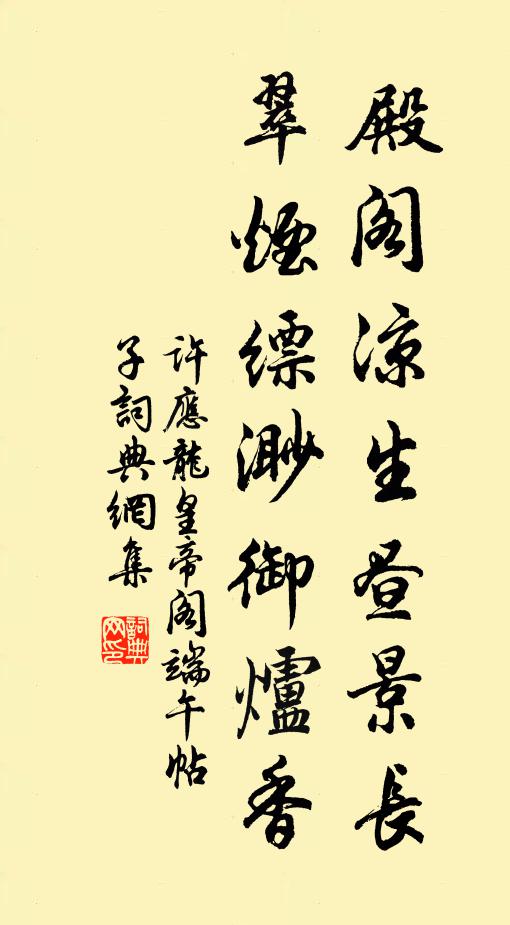 殿閣凉生昼景長
翠煙縹渺御爐香
許應龍皇帝閣端午帖
子詞典網集
詞典
网印